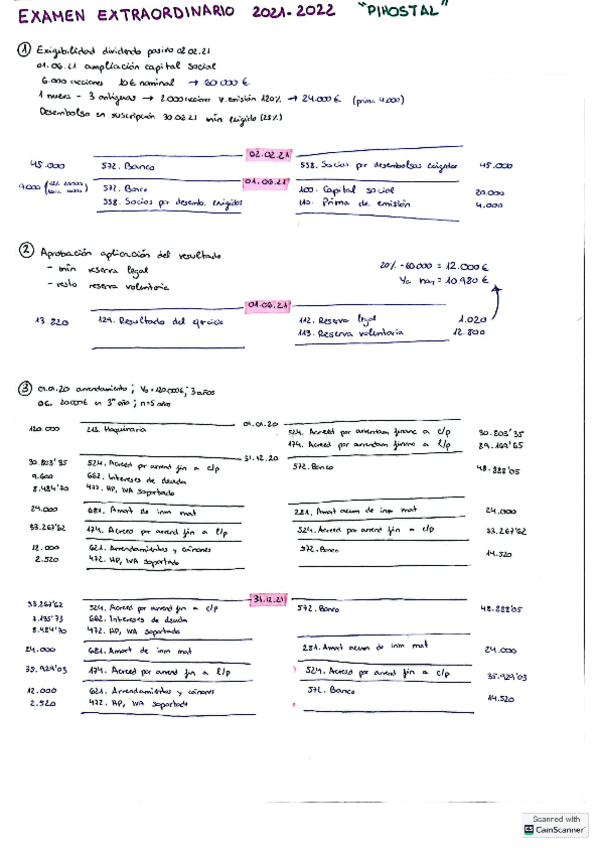 EXAMEN EXTRAORDINARIO 2021-2022 "PIHOSTAL"
① Exigibilidad dividendo pasivo 02.02.21
01.06.21 ampliación capital social
6.000 acciones 10€ nominal → 60.000€
1 nueva - 3 antiguas → 2.000 acciones v. emisión 120% → 24.000€ (prima 4.000)
Desembolso en suscripción 30.06.21 mín exigido (25%)
02.02.21
45.000 572. Banco 558. Socios por desembolsos exigidos 45.000
01.06.21
9.000 572. Banco 100. Capital social 20.000
558. Socios por desemb. exigidos 110. Prima de emisión 4.000
② Aprobación aplicación del resultado
- mín reserva legal
- resto reserva voluntaria
20% - 60.000 = 12.000€
Ya hay = 10.980€
01.06.21
13.820 129. Resultado del ejercicio 112. Reserva legal 1.020
113. Reserva voluntaria 12.800
③ 01.01.20 arrendamiento; Vo = 120.000€; 3 años
OC. 20000€ en 3er año; n=5 años
01.01.20
120.000 213. Maquinaria 524. Acreed por arrendam financ a c/p 30.803'35
174. Acreed por arrendam financ a l/p 89.169'65
31.12.20
30.803'35 524. Acreed por arrend fin a c/p 572. Banco 48.888'05
9.600 662. Intereses de deuda
8.484'70 472. HP, IVA soportado
24.000 681. Amort de inm mat 281. Amort acum de inm mat 24.000
33.267'62 174. Acreed por arrend fin a l/p 524. Acreed por arrend fin a c/p 33.267'62
12.000 621. Arrendamientos y cánones 572. Banco 14.520
2.520 472. HP, IVA soportado
31.12.21
33.267'62 524. Acreed por arrend fin a c/p 572. Banco 48.888'05
7.135'73 662. Intereses de deuda
8.484'70 472. HP, IVA soportado
24.000 681. Amort de inm mat 281. Amort acum de inm mat 24.000
35.929'03 174. Acreed por arrend fin a l/p 524. Acreed por arrend fin a c/p 35.929'03
12.000 621. Arrendamientos y cánones 572. Banco 14.520
2.520 472. HP, IVA soportado
Scanned with
CamScanner